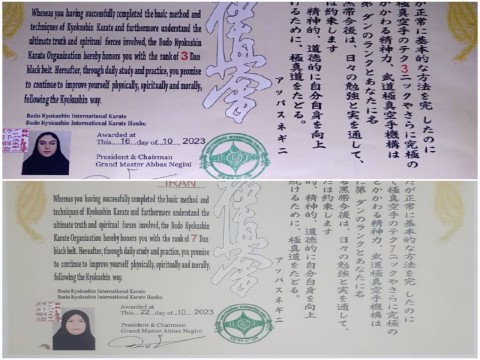 Whereas you having successfully completed the basic method and
techniques of Kyokushin Karate and furthermore understand the
ultimate truth and spiritual forces involved, the Budo Nyokushin
Karate Organization hereby honors you with the rank of 3 Dan
black belt. Hereafter, through daily study and practice, you promise
to continue to improve yourself physically, spiritually and morally,
following the Kyokushin way.
Budo Kyokushin International Karate
Budo Kyokushin International Karate Honbu
Awarded at
This 16 day of 10 2023
President & Chairman
Grand Master Abbas Negini
極真會
が正常に基本的な方法を完したのに
極真空手のテク3ニックやさらに究極の
とかかわる精神力、武道極真空手機構は
に第 ダンのランクとあなたに名
る黒帯今後は、日々の勉強と実を通して、
は約束します
精神的、道徳的に自分自身を向上
けるために、極真道をたどる。
アッバスネギニ
IRAN
Whereas you having successfully completed the basic method and
techniques of Kyokushin Karate and furthermore understand the
ultimate truth and spiritual forces involved, the Budo Kyokushin
Karate Organization hereby honors you with the rank of 7 Dan
black belt. Hereafter, through daily study and practice, you promise
to continue to improve yourself physically, spiritually and morally,
following the Kyokushin way.
Budo Kyokushin International Karate
Budo Kyokushin International Karate Honbu
Awarded at
This 22 day of 10 2023
President & Chairman
Grand Master Abbas Negini
極真會
が正常に基本的な方法を完したのに
極真空手のテクニックやさらに究極の
とかかわる精神力、武道極真空手機構は
に第 ダンのランクとあなたに名
る黒帯今後は、日々の勉強と実を通して、
たは約束します
精神的、道徳的に自分自身を向上
続けるために、極真道をたどる。
アッバスネギニ